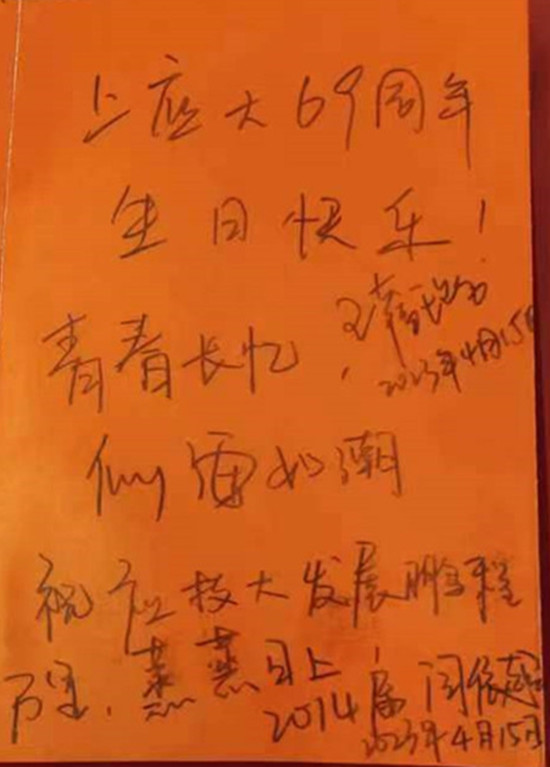 上应大69周年
生日快乐！
2023年4月15日
青春长忆，
似雷如潮
祝应技大发展鹏程
万里，蒸蒸日上，
2014届 闫
2023年4月15日